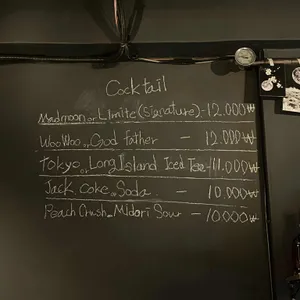 Cocktail
Madmoon or Limite (Signature) - 12.000₩
Woo Woo or God father - 12.000₩
Tokyo or Long Island Iced Tea - 11.000₩
Jack Coke or Soda - 10.000₩
Peach Crush or Midori Sour - 10.000₩